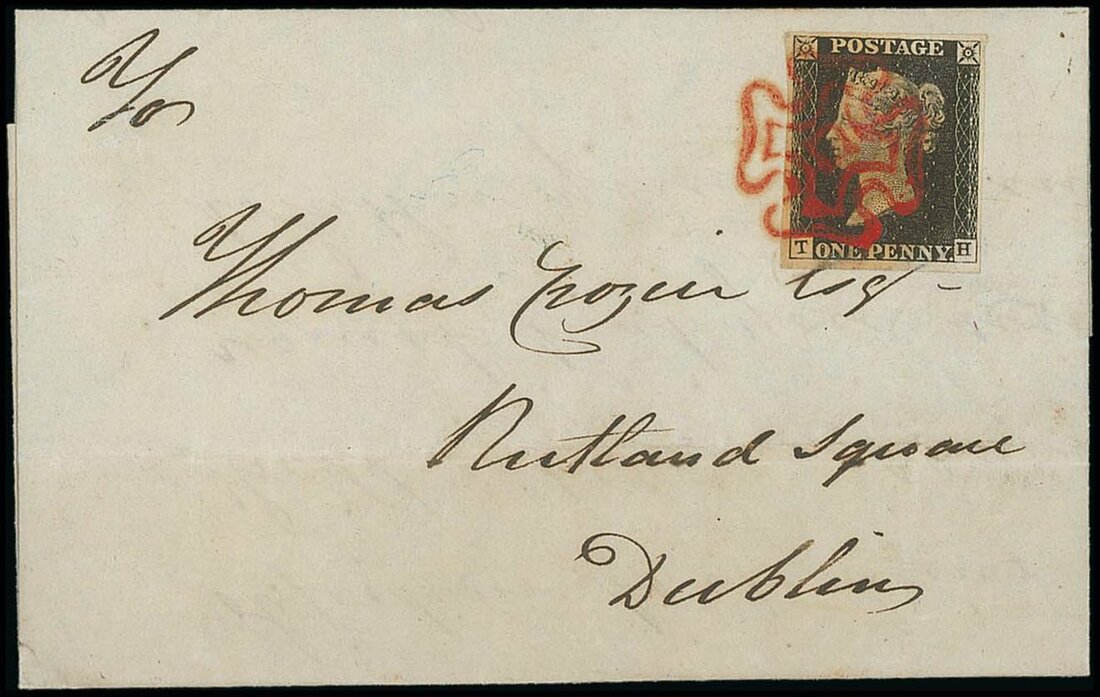 POSTAGE
T ONE PENNY H
Thomas Crozier Esqr
Rutland Square
Dublin